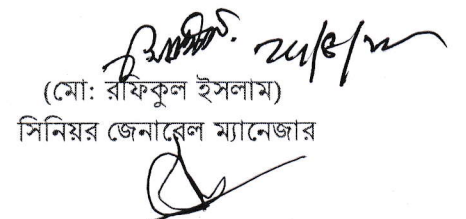 (মো: রফিকুল ইসলাম)
সিনিয়র জেনারেল ম্যানেজার